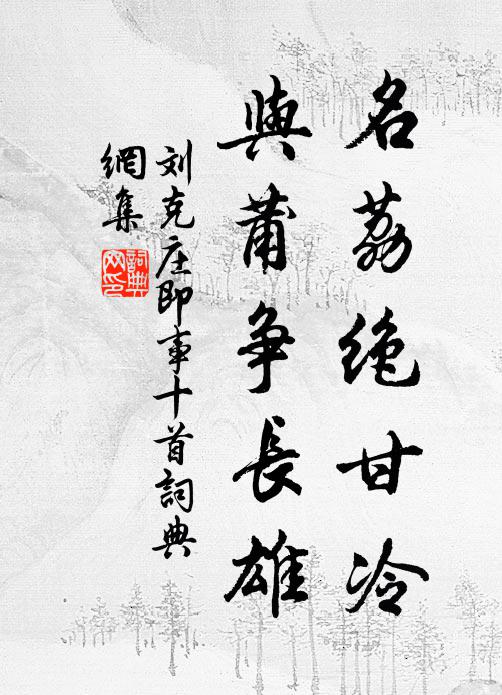 名荔绝甘冷
與莆争長雄
刘克庄即事十首詞典
網集
詞典
网印